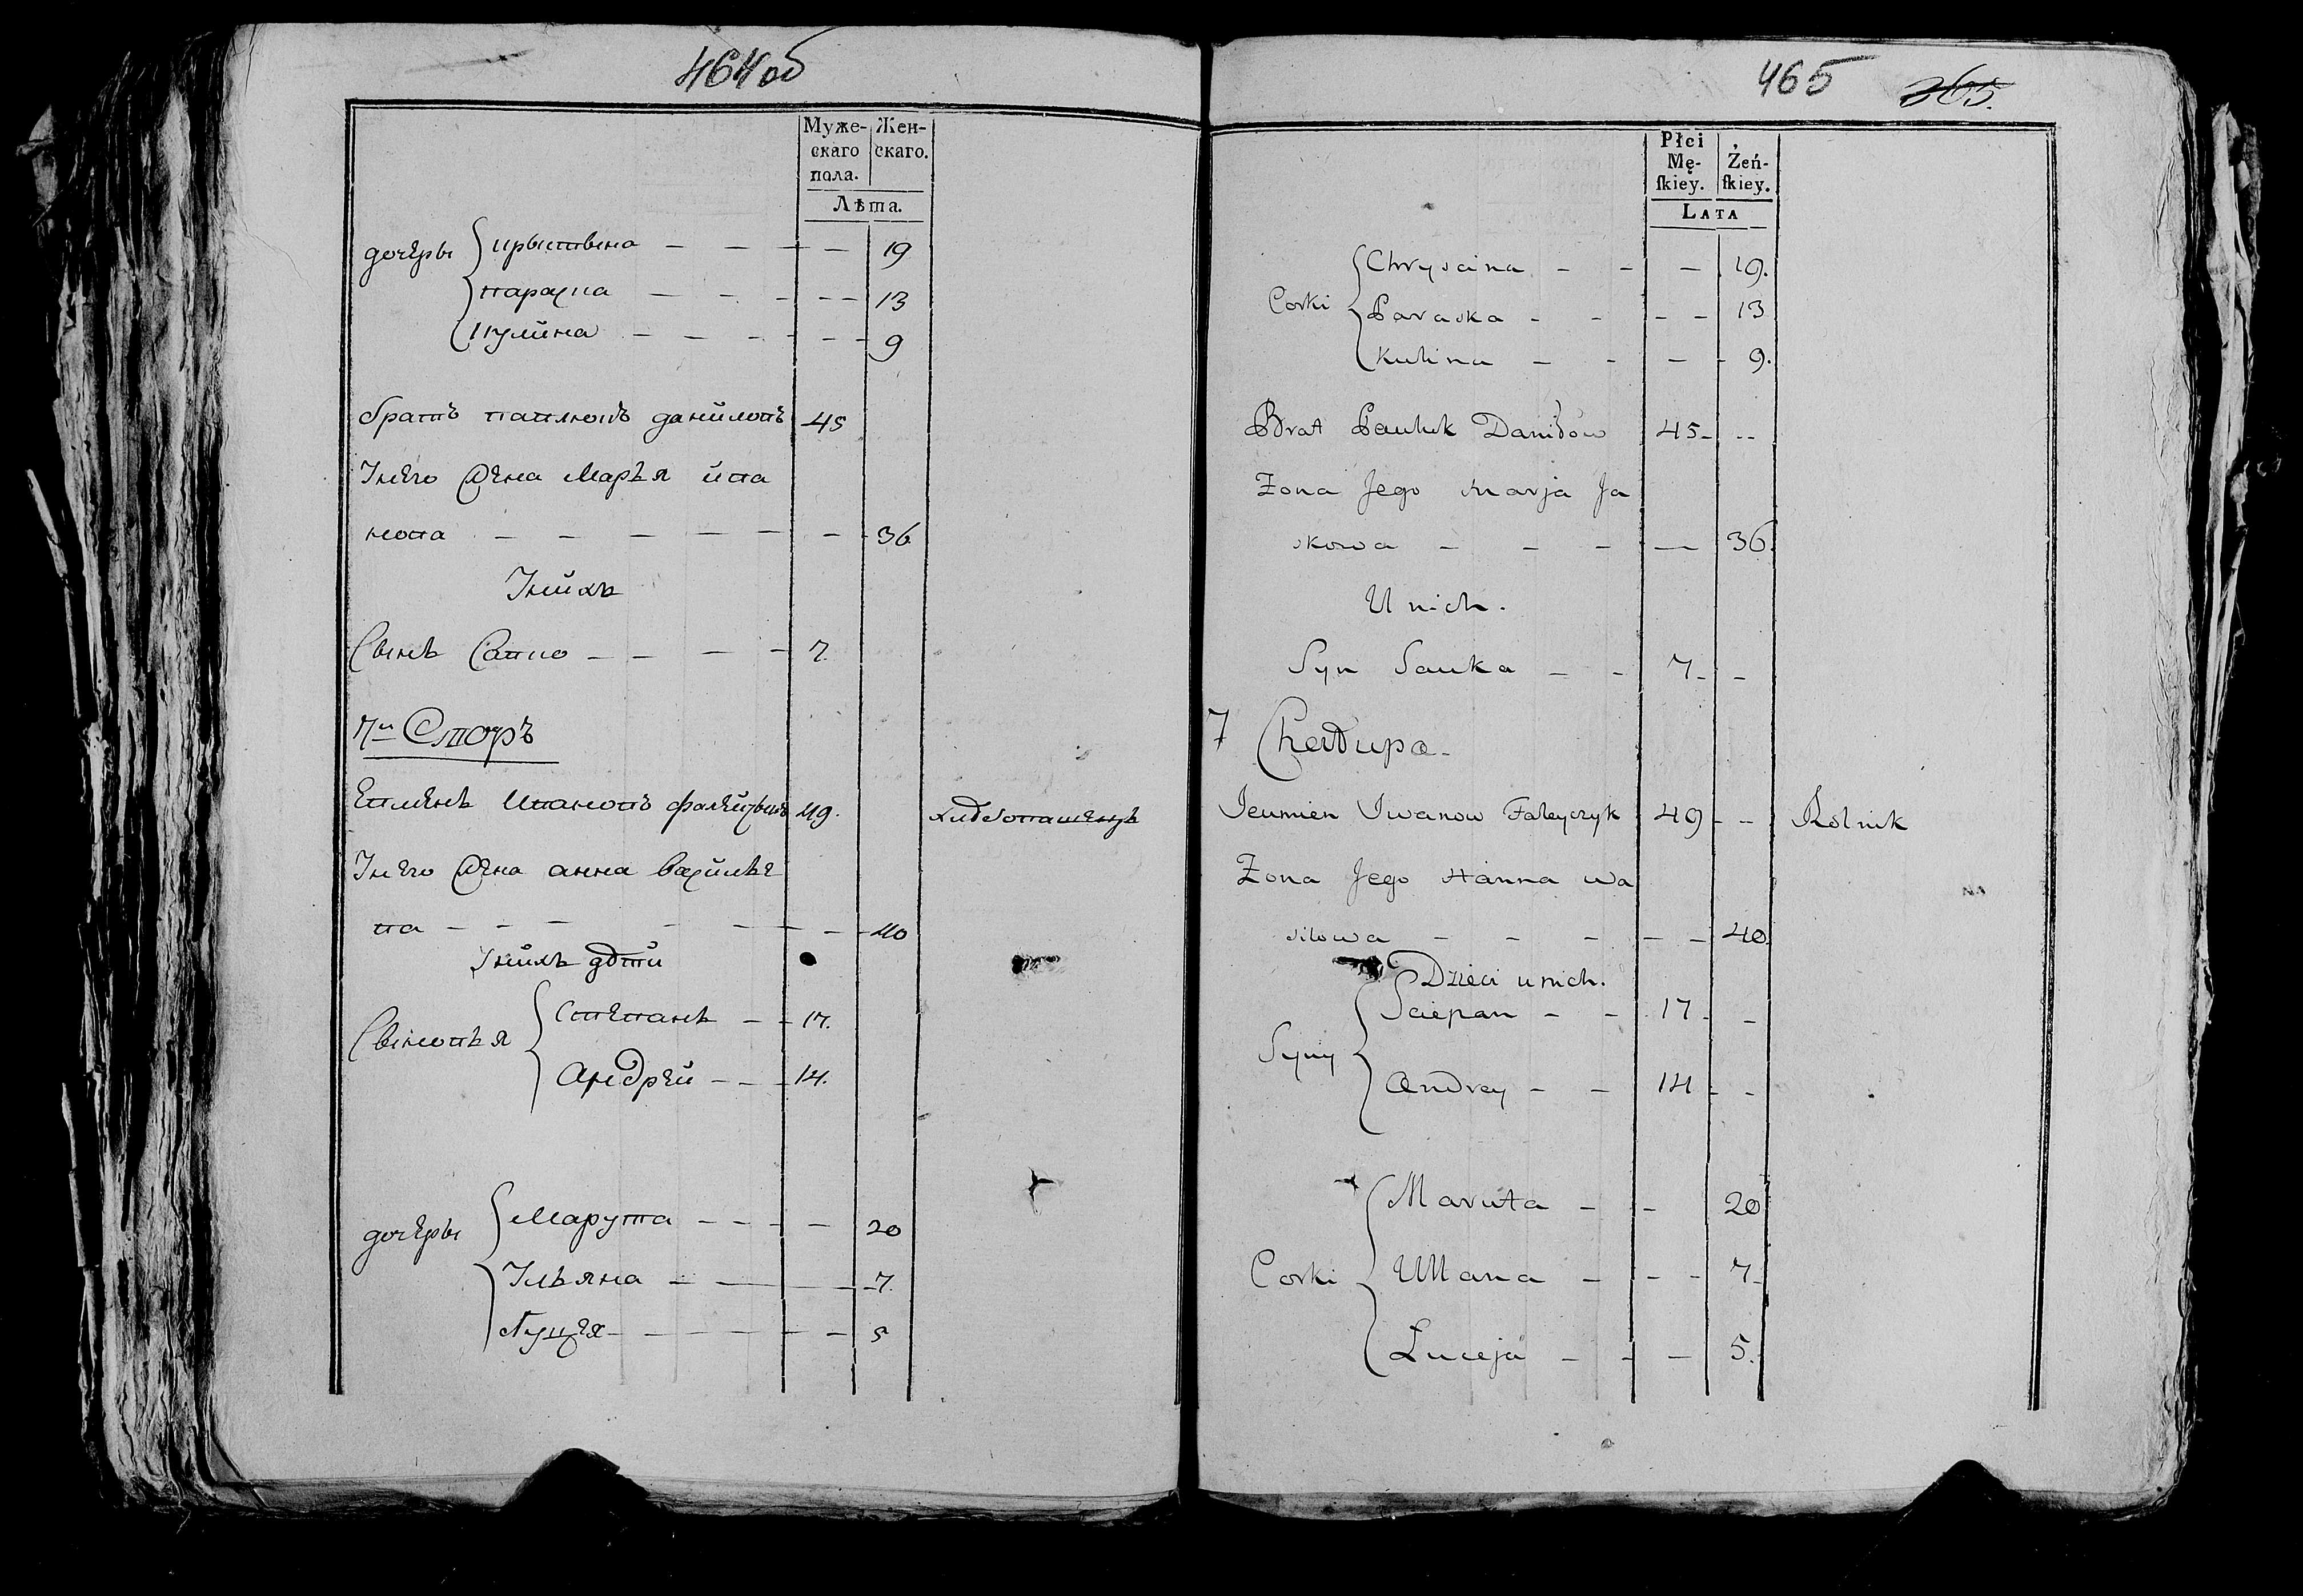 464 об
Муже-
скаго
пола.
Жен-
скаго.
Лѣта.
дочери
Крыстына — — — — 19
Параска — — — — — 13
Кулина — — — — — — 9
братъ Павлюкъ Даниловъ 45
У него жена Марья Ива
нова — — — — — — — 36
У нихъ
Сынъ Савко — — — — 7.
7й Дворъ
Евменъ Ивановъ Фалейчыкъ 49. хлебопашецъ
У него жена Анна Васильє
ва — — — — — — — 40
У нихъ дѣти
Сыновья
Степанъ — — 17.
Андрей — — — 14.
дочеры
Марута — — — — 20
Ульяна — — — — 7.
Луцея — — — — — — 5
465 365.
Płci
Mę-
ſkiey.
Żeń-
ſkiey.
LATA
Corki
Chryscina — — — 19.
Paraska — — — — 13
Kulina — — — — 9.
Brat Pauluk Daniłow 45 — --
Zona Jego Marja Ja
skowa — — — — 36.
U nich.
Syn Sauka — — 7 — —
7 Chałupa —
Jeumien Iwanow Faleyczyk 49 — — Rolnik
Zona Jego Hanna Wa
silowa — — — — — 40.
Dzieci u nich.
Syny
Sciepan — — 17 — —
Andrey — — 14 — —
Corki
Maruta — — 20
Ullana — — — 7 —
Luceja — — — 5.